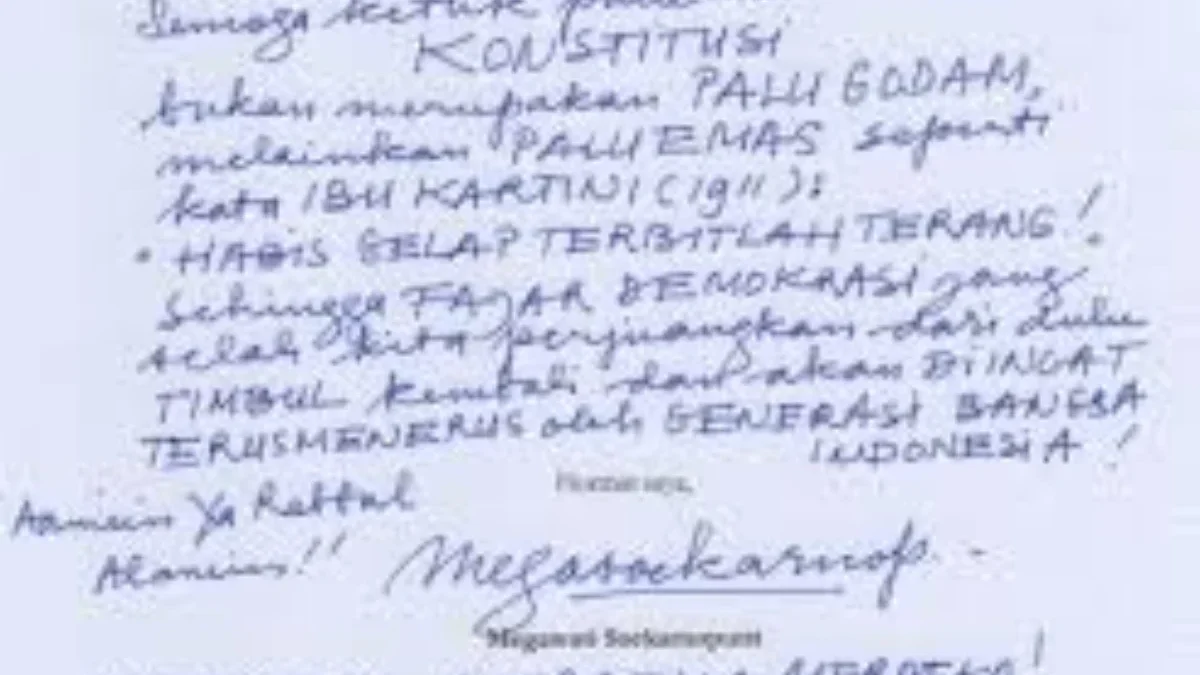 Semoga ketuk palu
KONSTITUSI
bukan merupakan PALU GODAM,
melainkan PALU EMAS seperti
kata IBU KARTINI (1911):
"HABIS GELAP TERBITLAH TERANG!
Sehingga FAJAR DEMOKRASI yang
telah kita perjuangkan dari dulu
TIMBUL kembali dan akan DIINGAT
TERUSMENERUS oleh GENERASI BANGSA
INDONESIA!
Hormat saya,
Aamiin Ya Rabbal
Alamin!!
Megasoekarnop.
Megawati Soekarnoputri
MERDEKA!